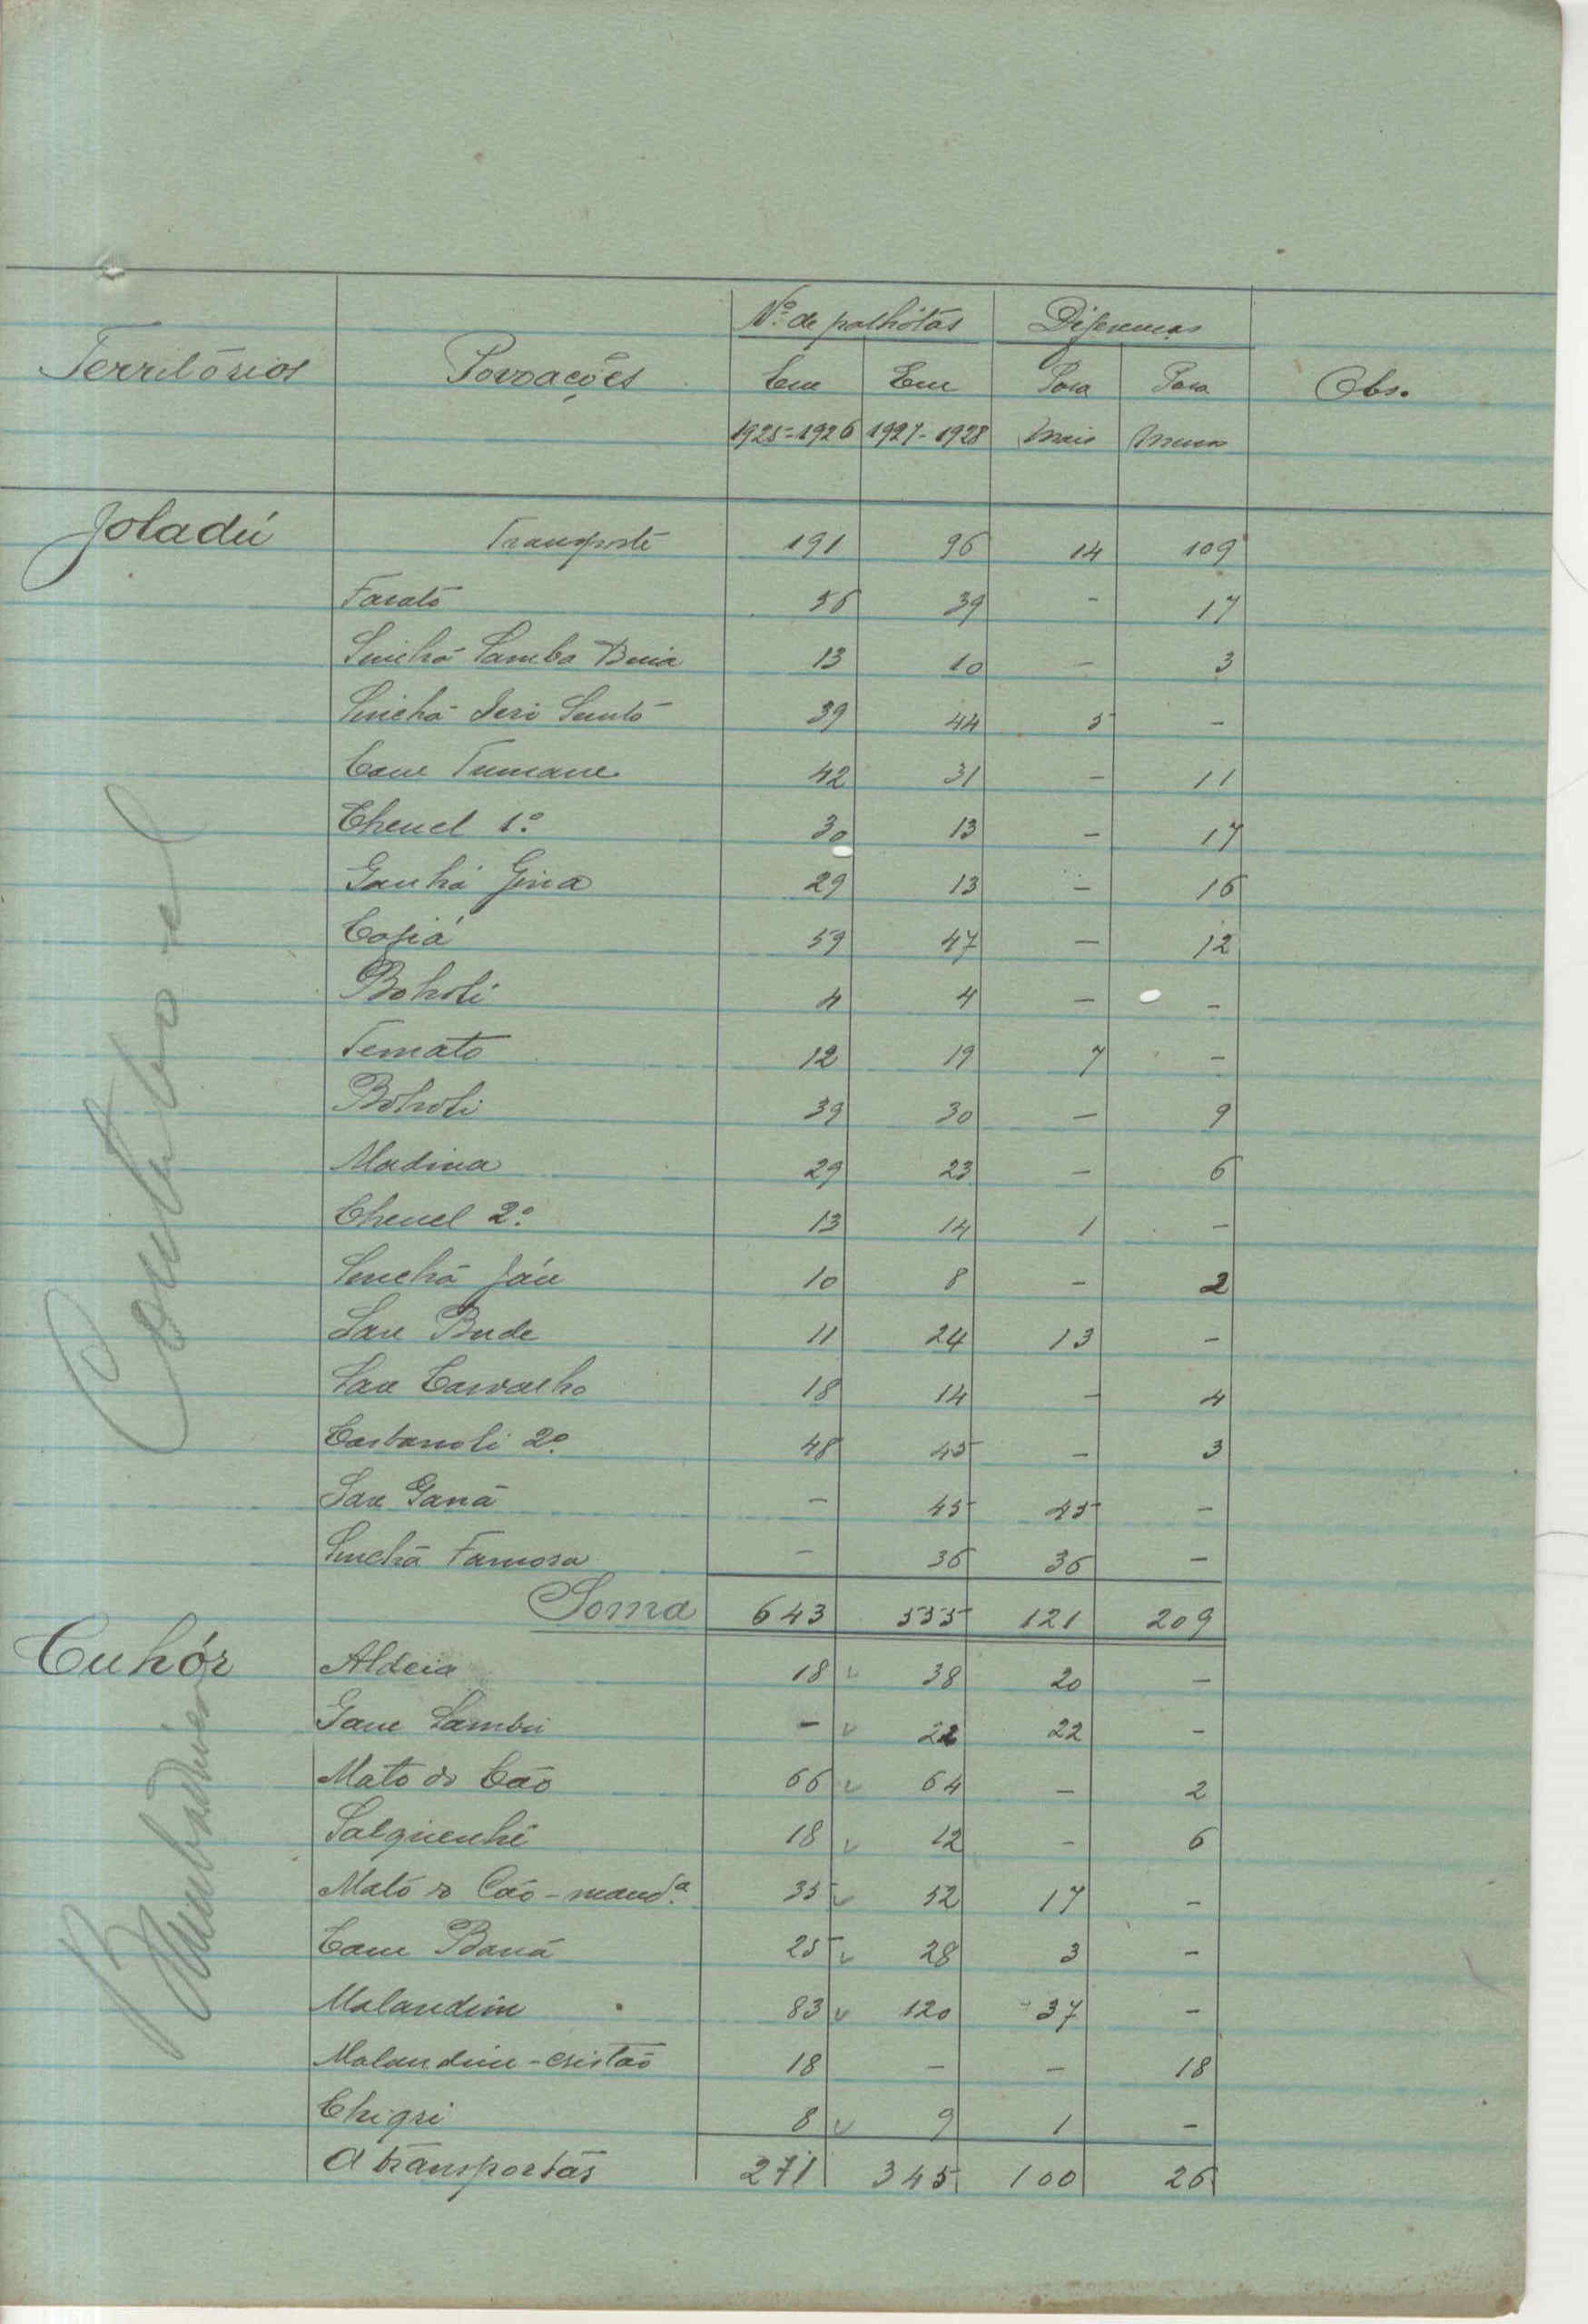 Nº de palhótas Diferenças
Territórios Povoações Em Em Para Para Obs.
1925-1926 1927-1928 mais menos
Joladú Transporte 191 96 14 109
Farató 56 39 - 17
Sinchã Samba 13 10 - 3
Sinchã Jeri 39 44 5 -
Tumane 42 31 - 11
Chenel 1º 30 13 - 17
Ganhá Gina 29 13 - 16
59 47 - 12
Boholi 4 4 - -
Temato 12 19 7 -
Boholi 39 30 - 9
Madina 29 23 - 6
Chenel 2º 13 14 1 -
Sinchã 10 8 - 2
Sare Bude 11 24 13 -
Sare Carvalho 18 14 - 4
2º 48 45 - 3
Sare Ganã - 45 45 -
Sinchã Famosa - 36 36 -
Soma 643 555 121 209
Cuhór Aldeia 18 38 20 -
Gane - 22 22 -
Mato do Cão 66 64 - 2
Salquenhé 18 12 - 6
Mato do Cão-mandª 35 52 17 -
25 28 3 -
Malandim 83 120 37 -
Malandim-cristão 18 - - 18
8 9 1 -
A transportar 271 345 100 26
Bambadinca